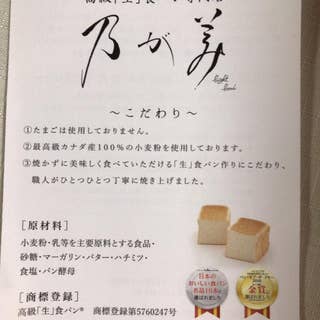 高級「生」食パン専門店
乃が美
〜こだわり〜
①たまごは使用しておりません。
②最高級カナダ産100%の小麦粉を使用しております。
③焼かずに美味しく食べていただける「生」食パン作りにこだわり、
職人がひとつひとつ丁寧に焼き上げました。
[原材料]
小麦粉・乳等を主要原料とする食品・
砂糖・マーガリン・バター・ハチミツ・
食塩・パン酵母
[商標登録]
高級「生」食パン® 商標登録第5760247号
日本の
おいしい食パン
名品10本に
選ばれました
金賞に
選ばれました